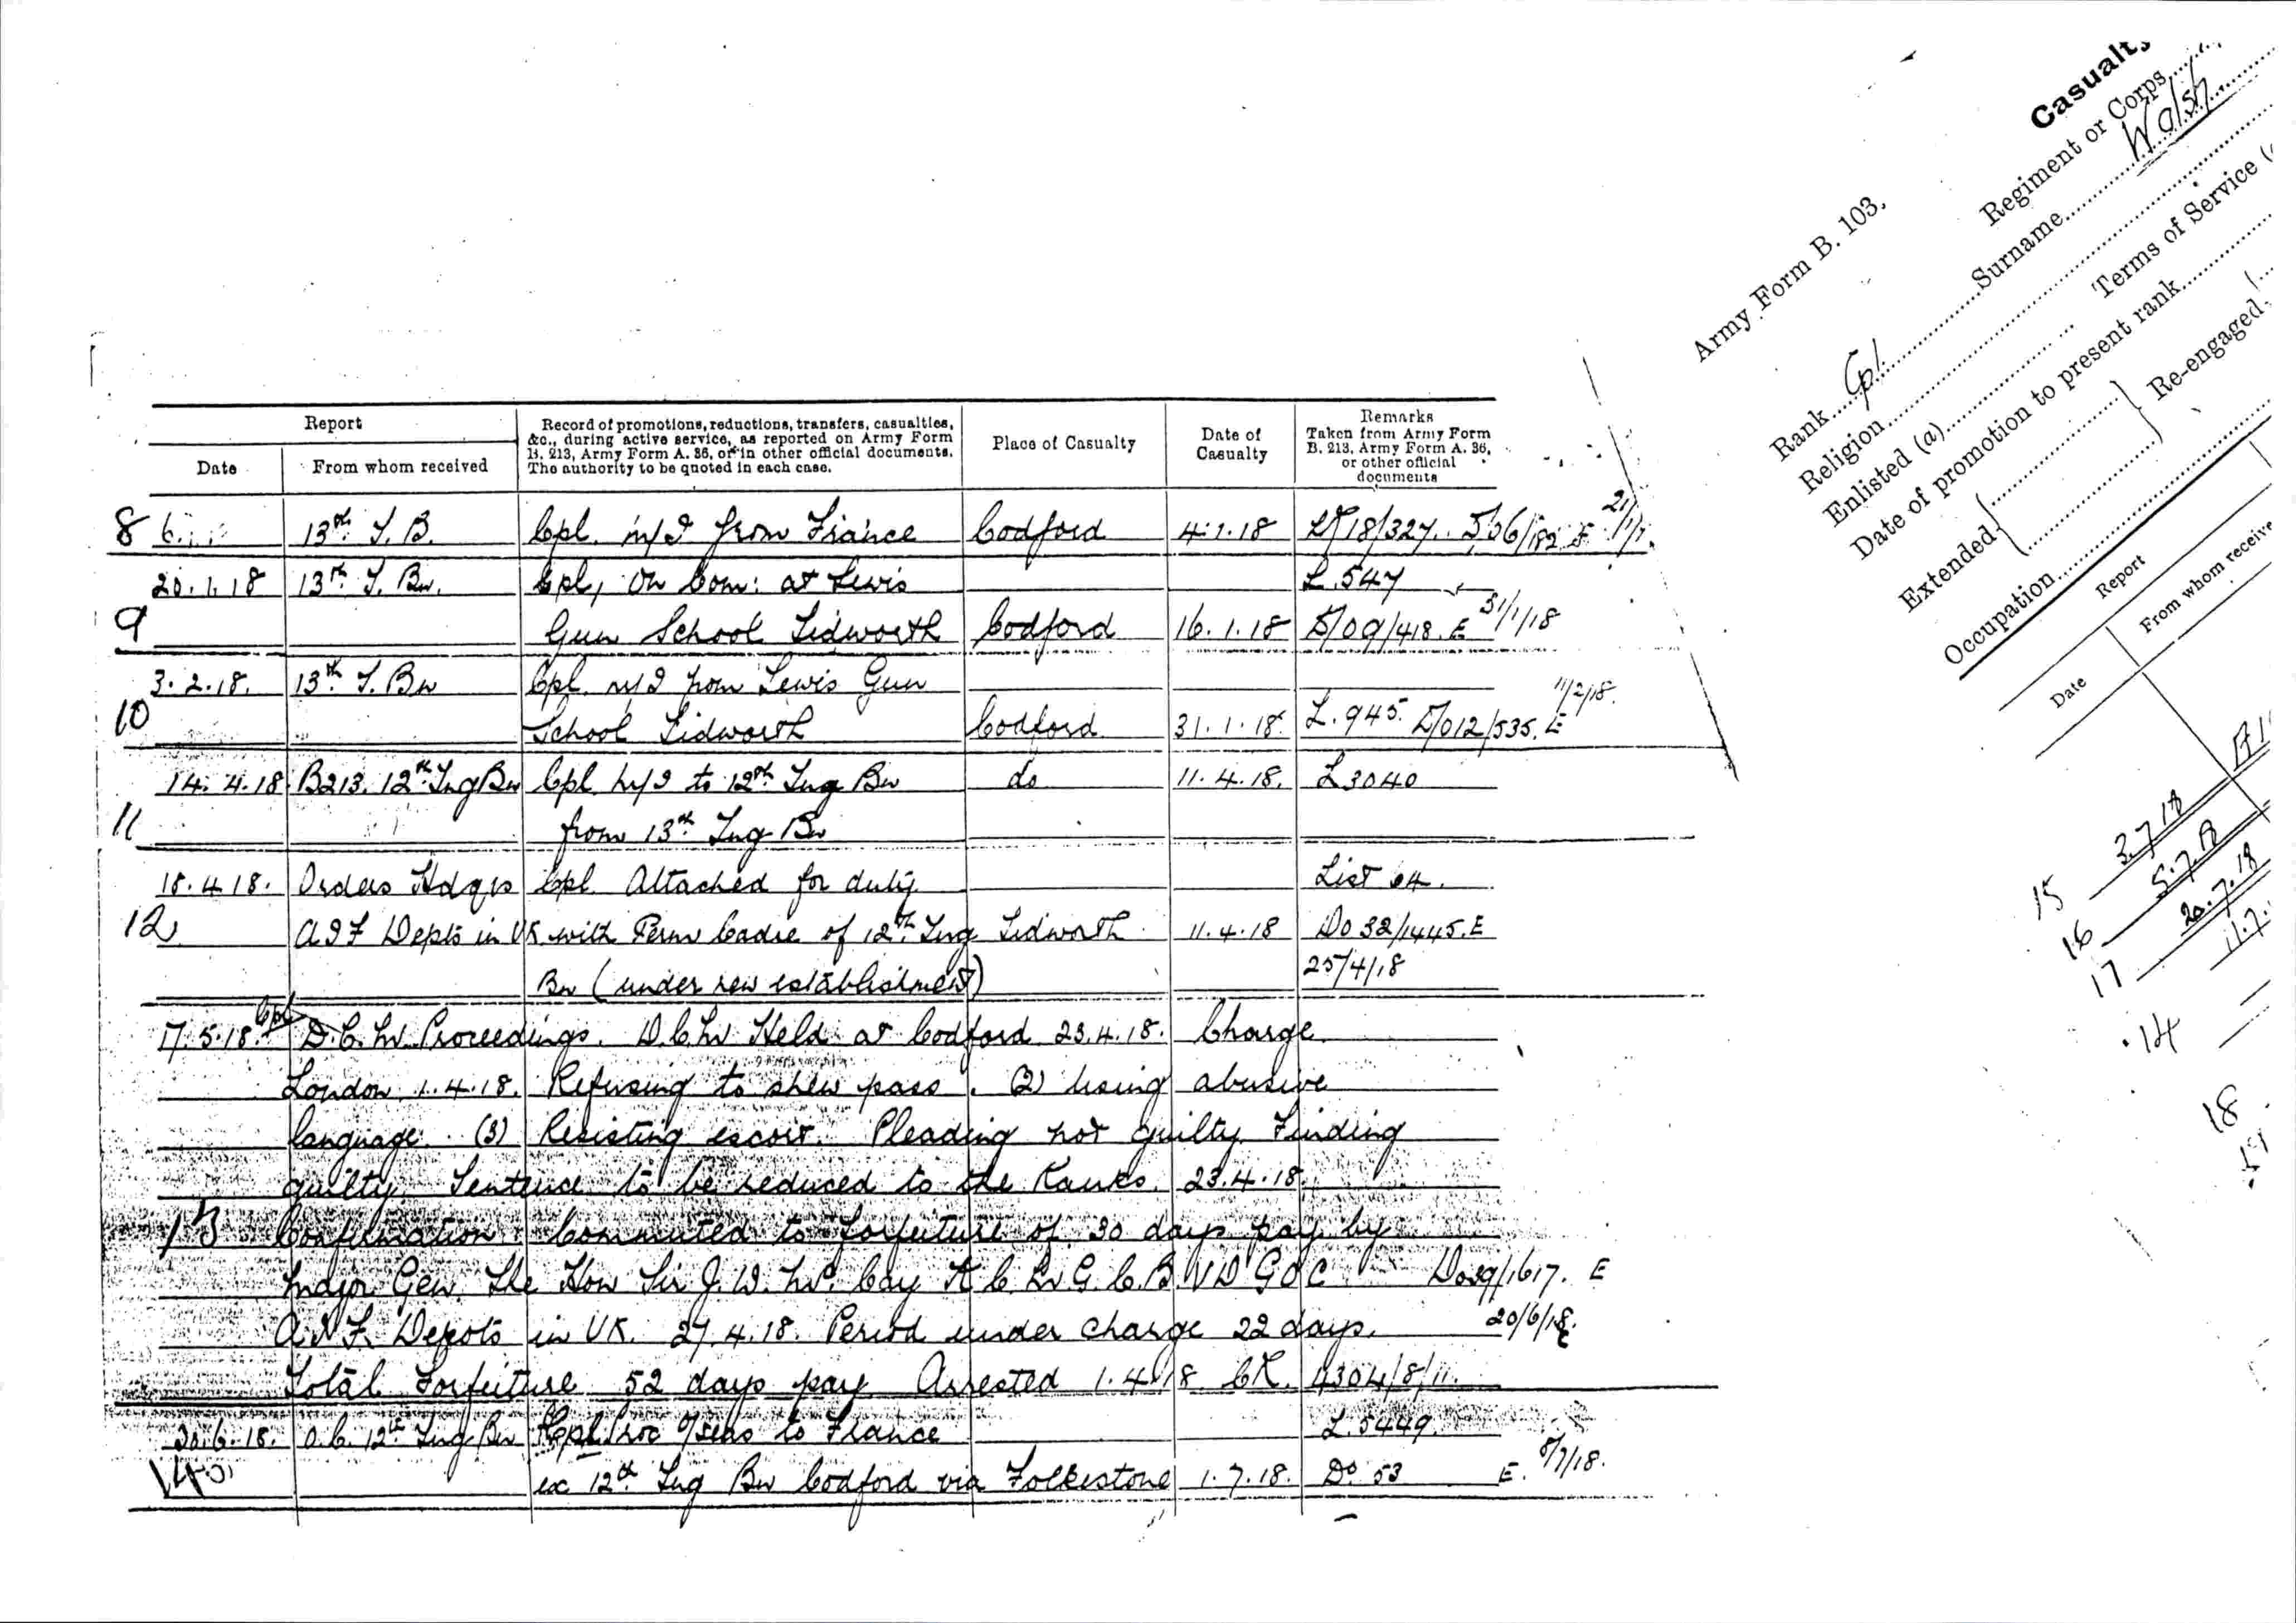 Report
Record of promotions, reductions, transfers, casualties,
&c., during active service, as reported on Army Form
B. 213, Army Form A. 36, or in other official documents.
The authority to be quoted in each case.
Place of Casualty
Date of
Casualty
Remarks
Taken from Army Form
B. 213, Army Form A. 36,
or other official
documents
Date
From whom received
8 6. 13th T. B. Cpl. m/I from France Codford 4.1.18
20.1.18 13th T. Bn. Cpl, On Com: at Lewis L.547
9 Gun School Tidworth Codford 16.1.18 D/09/418. E 31/1/18
3.2.18. 13th T. Bn Cpl. m/I from Lewis Gun 11/2/18.
10 School Tidworth Codford 31.1.18 L.945. D/012/535. E
14.4.18 B213. 12th Tng Bn Cpl. m/I to 12th Tng Bn do 11.4.18. L3040
11 from 13th Tng Bn
18.4.18. Orders Hdqrs Cpl. Attached for duty List 64.
12 AIF Depts in UK with Perm Cadre of 12th Tng Tidworth 11.4.18 Do 32/1445. E
Bn (under new establishment) 25/4/18
17.5.18. Cpl D.C.M. Proceedings. D.C.M Held at Codford 23.4.18. Charge
London 1.4.18. Refusing to shew pass. (2) Using abusive
language. (3) Resisting escort. Pleading not guilty Finding
guilty. Sentence to be reduced to the Ranks. 23.4.18.
13 Confirmation. Commuted to forfeiture of 30 days pay by
Major Gen. The Hon Sir J.W. Mc. Cay K.C.M.G. C.B. VD GOC Do39/1617. E
A.I.F. Depots in UK. 27.4.18. Period under charge 22 days. 20/6/18.
Total Forfeiture 52 days pay Arrested 1.4.18 CR. 4304/8/11.
30.6.18. O.C. 12th Tng Bn Cpl. Proc o/seas to France L.5449.
14 ex 12th Tng Bn Codford via Folkestone 1.7.18. Do 53 E. 8/7/18.
Army Form B. 103.
Casualty
Regiment or Corps
Rank Cpl. Surname Walsh
Religion
Enlisted (a) Terms of Service (
Date of promotion to present rank
Extended Re-engaged
Occupation
Report
Date
From whom receive
15 3.7.18
16 5.7.18
17 20.7.18
14
18